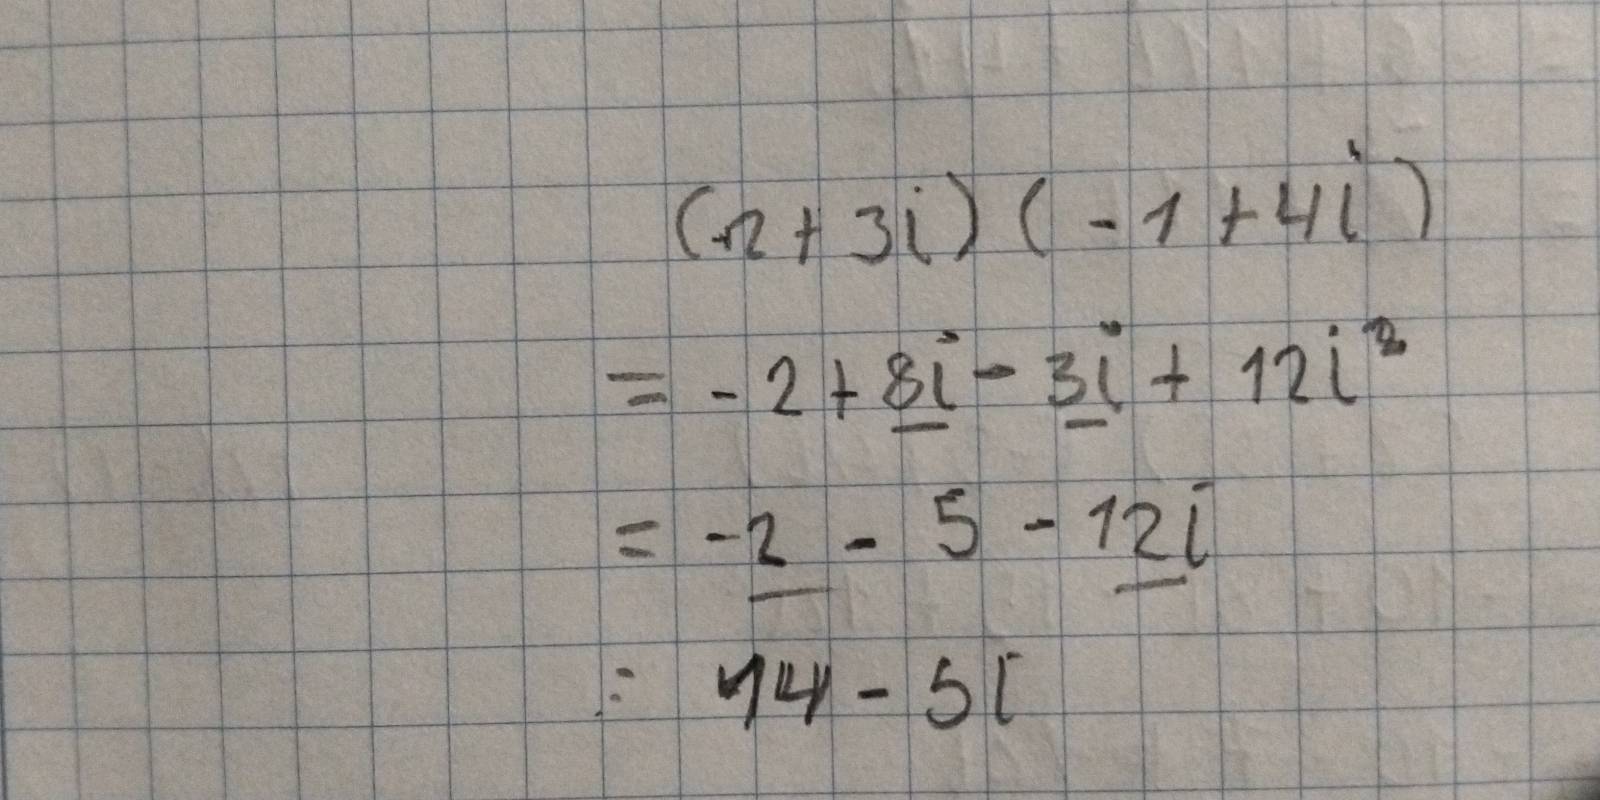 (2+3i)(-1+4i)
= -2+8i-3i+12i²
= -2-5-12i
= 14-5i